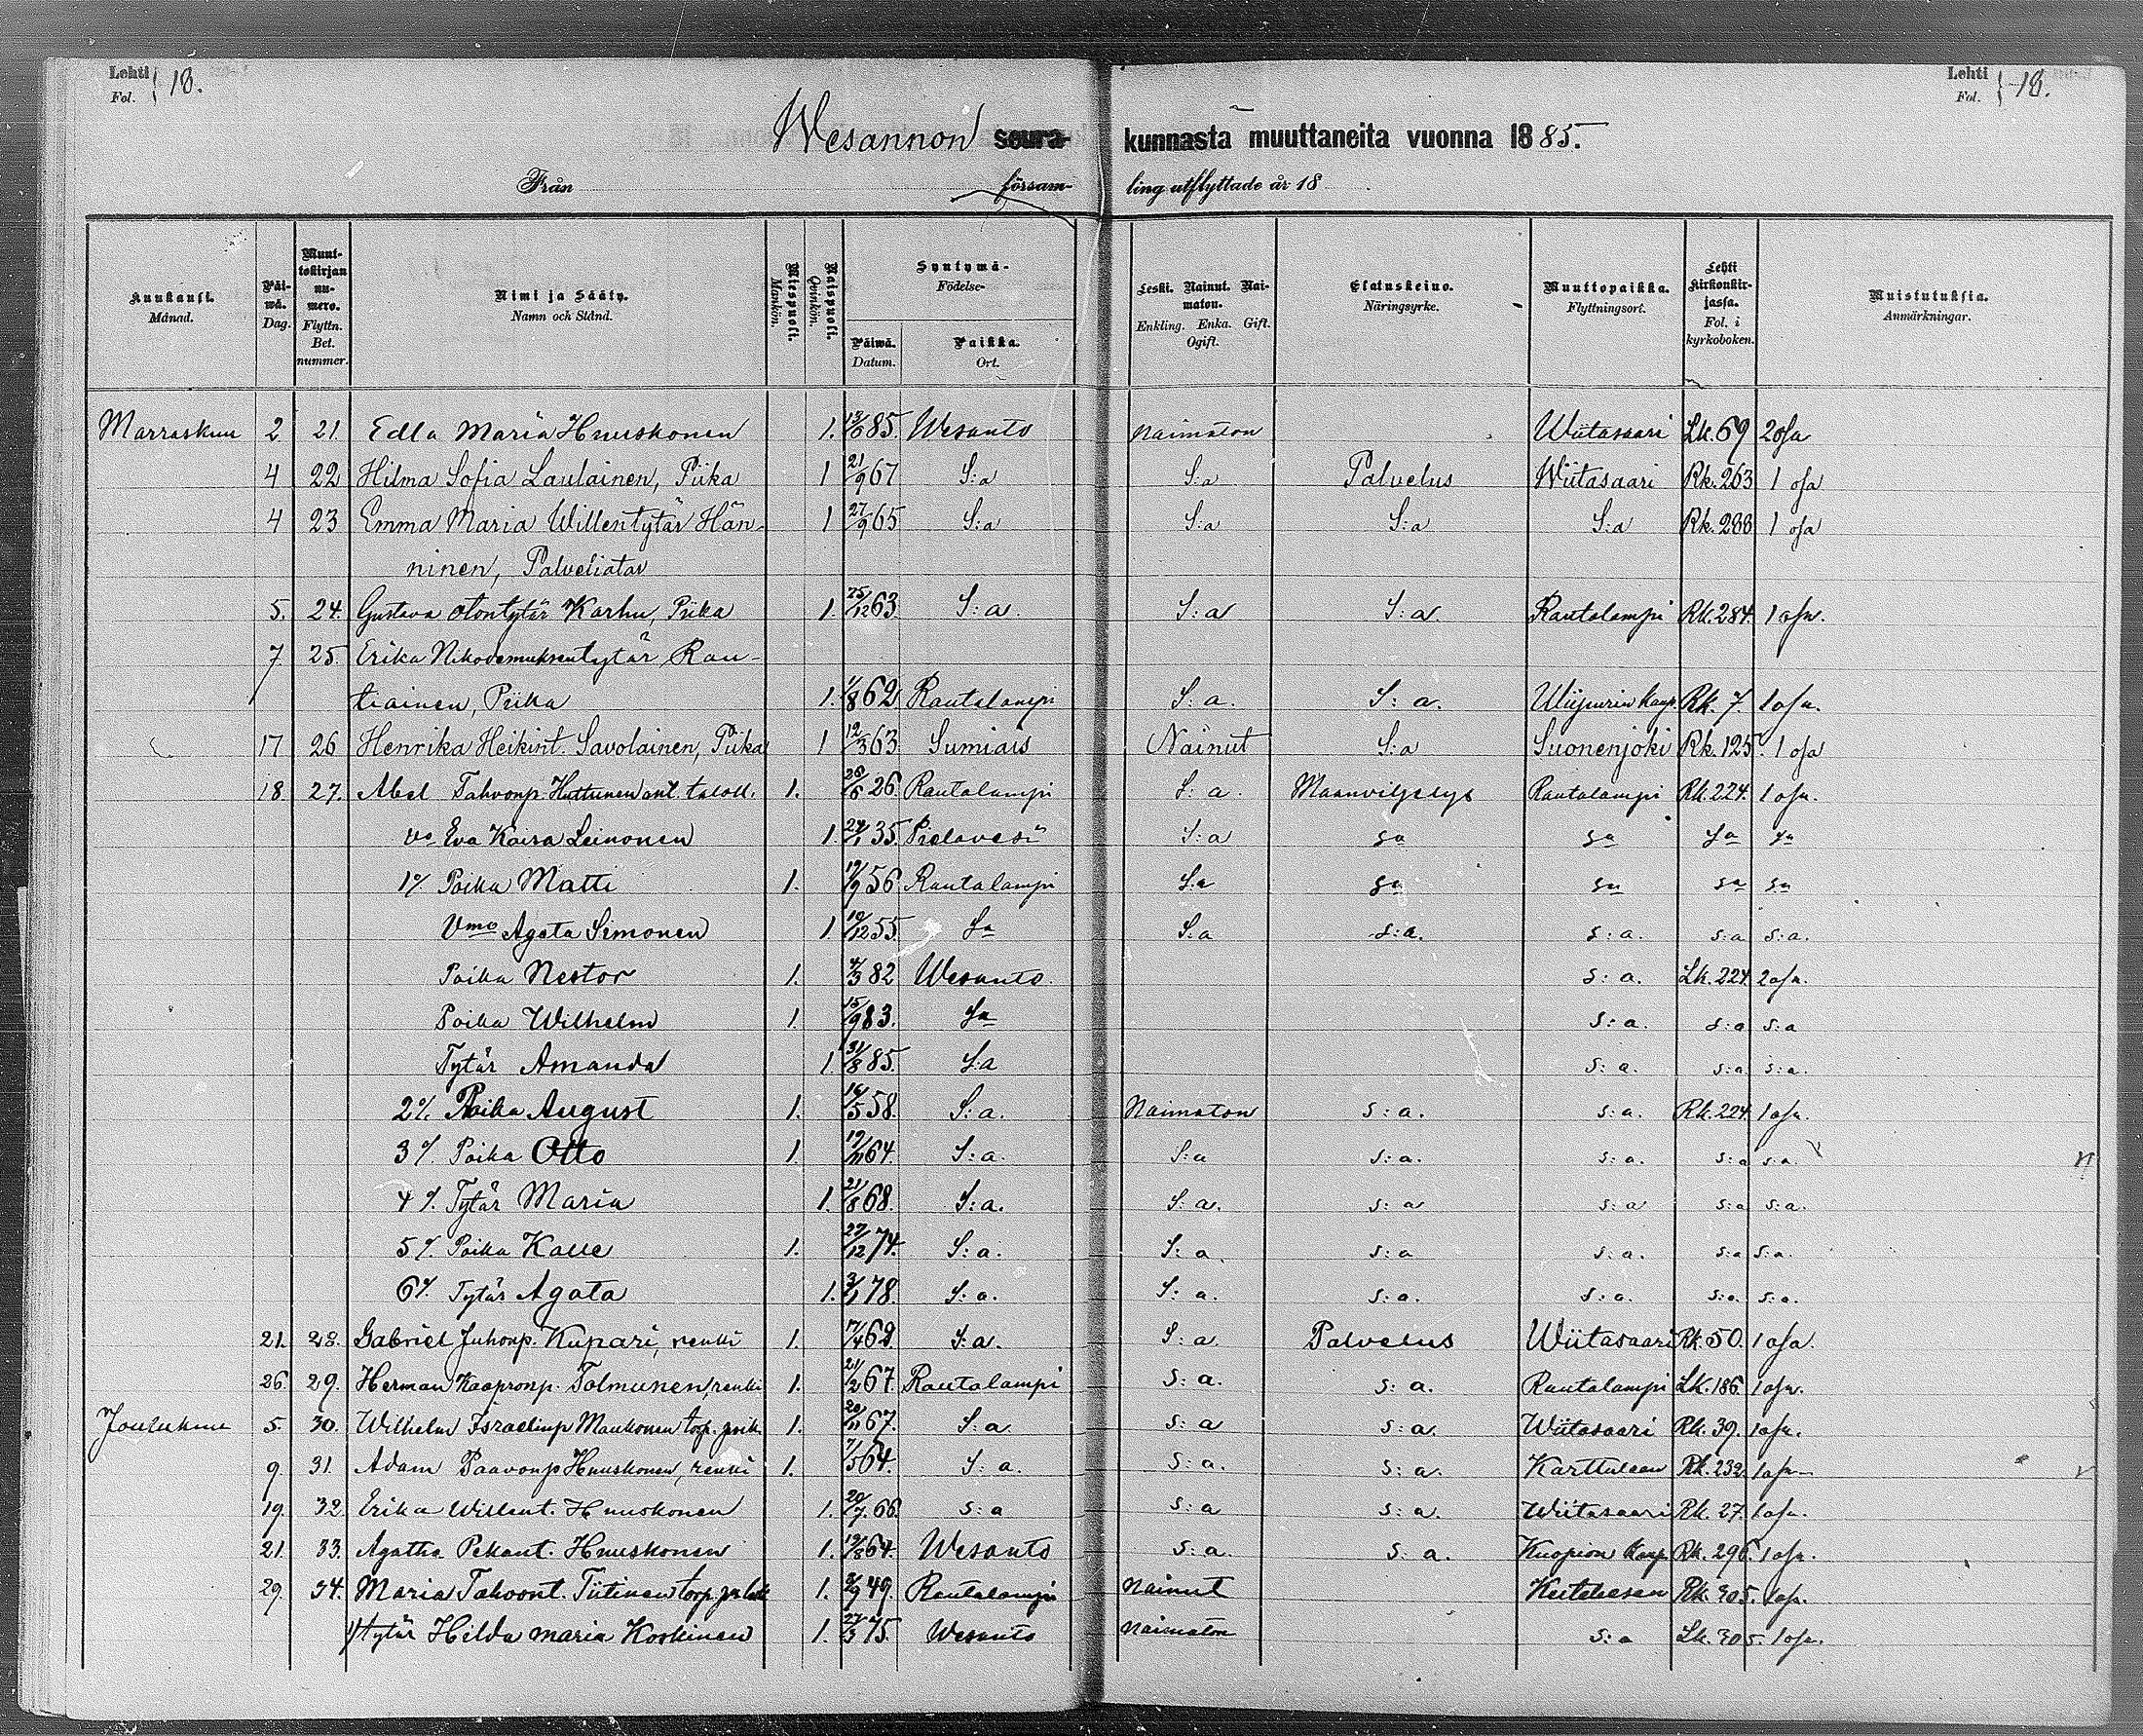 Lehti Fol. } 18.
Lehti Fol. } 18.
Wesannon seurakunnasta muuttaneita vuonna 1885.
Från försam- ling utflyttade år 18
Kuukausi. Månad. Päiwä. Dag. Muuttokirjan numero. Flyttn. Bet. nummer. Nimi ja Sääty. Namn och Stånd. Miespuoli. Mankön. Naispuoli. Qvinkön. Syntymä- Födelse- Päiwä. Datum. Paikka. Ort. Leski. Nainut. Naimaton. Enkling. Enka. Gift. Ogift. Elatuskeino. Näringsyrke. Muuttopaikka. Flyttningsort. Lehti Kirkonkirjassa. Fol. i kyrkoboken. Muistutuksia. Anmärkningar.
Marraskuu 2 21. Edla Maria Huuskonen 1. 85. Wesanto Naimaton Wiitasaari Lk. 69 2 osa
4 22 Hilma Sofia Laulainen, Piika 1 21/9 67 S:a S:a Palvelus Wiitasaari Rk. 263 1 osa
4 23 Emma Maria Willentytär Hän- 1 27/9 65 S:a S:a S:a S:a Rk. 288 1 osa
ninen, Palveliatar
5. 24. Gustava Otontytär Karhu, Piika 1. 25/12 63. S:a. S:a S:a. Rautalampi Rk. 284. 1 osa.
7 25. Erika Nikodemuksentytär Rau-
tiainen, Piika 1. 1/8 62 Rautalampi S:a. S:a. Wiipurin kaup. Rk. 7. 1 osa.
17 26 Henrika Heikint. Savolainen, Piika 1 12/3 63 Sumiais Nainut S:a Suonenjoki Rk. 125. 1 osa
18 27. Abel Tahvonp. Huttunen ent. taloll. 1. 26/6 26. Rautalampi S:a. Maanviljelys Rautalampi Rk. 224. 1 osa.
Vo Eva Kaisa Leinonen 1. 24/1 35. Pielavesi S:a Sa Sa Sa Sa
1% Poika Matti 1. 19/9 56 Rautalampi S:a Sa Sa Sa Sa
Vmo Agata Simonen 1. 10/12 55. Sa S:a S:a. S:a. S:a S:a.
Poika Nestor 1. 4/3 82 Wesanto. S:a. Lk. 224. 2 osa.
Poika Wilhelm 1. 15/9 83. Sa S:a. S:a S:a
Tytär Amanda 1. 31/8 85. S:a S:a. S:a S:a.
2% Poika August 1. 16/5 58. S:a. Naimaton S:a. S:a. Rk. 224. 1 osa.
3% Poika Otto 1. 19/11 64. S:a. S:a S:a. S:a. S:a S:a.
4% Tytär Maria 1. 21/8 68. S:a. S:a. S:a S:a S:a S:a.
5% Poika Kalle 1. 27/12 74. S:a. S:a. S:a S:a. S:a S:a.
6% Tytär Agata 1. 3/1 78. S:a. S:a. S:a. S:a. S:a. S:a.
21. 28. Gabriel Juhonp. Kupari, renki 1. 7/4 62. S:a. S:a. Palvelus Wiitasaari Rk. 50. 1 osa.
26. 29. Herman Kaapronp. Tolmunen, renki 1. 21/2 67. Rautalampi S:a. S:a. Rautalampi Lk. 186. 1 osa.
Joulukuu 5. 30. Wilhelm Israelinp Maukonen torp. poik. 1. 20/11 67. S:a. S:a S:a. Wiitasaari Rk. 39. 1 osa.
9. 31. Adam Paavonp Huuskonen, renki 1. 7/5 64. S:a. S:a. S:a. Karttulaan Rk. 232. 1 osa
19. 32. Erika Willent. Huuskonen 1. 20/7 66. S:a S:a S:a. Wiitasaari Rk. 27. 1 osa.
21. 33. Agatha Pekant. Huuskonen 1. 19/8 64. Wesanto S:a. S:a. Kuopion kaup. Rk. 296. 1 osa.
29. 34. Maria Tahvont. Tiitinen torp. 1. 49. Rautalampi Nainut Keiteleesen Rk. 305. 1 osa.
tytär Hilda Maria Koskinen 1. 27/3 75. Wesanto Naimaton S:a Lk. 305. 1 osa.